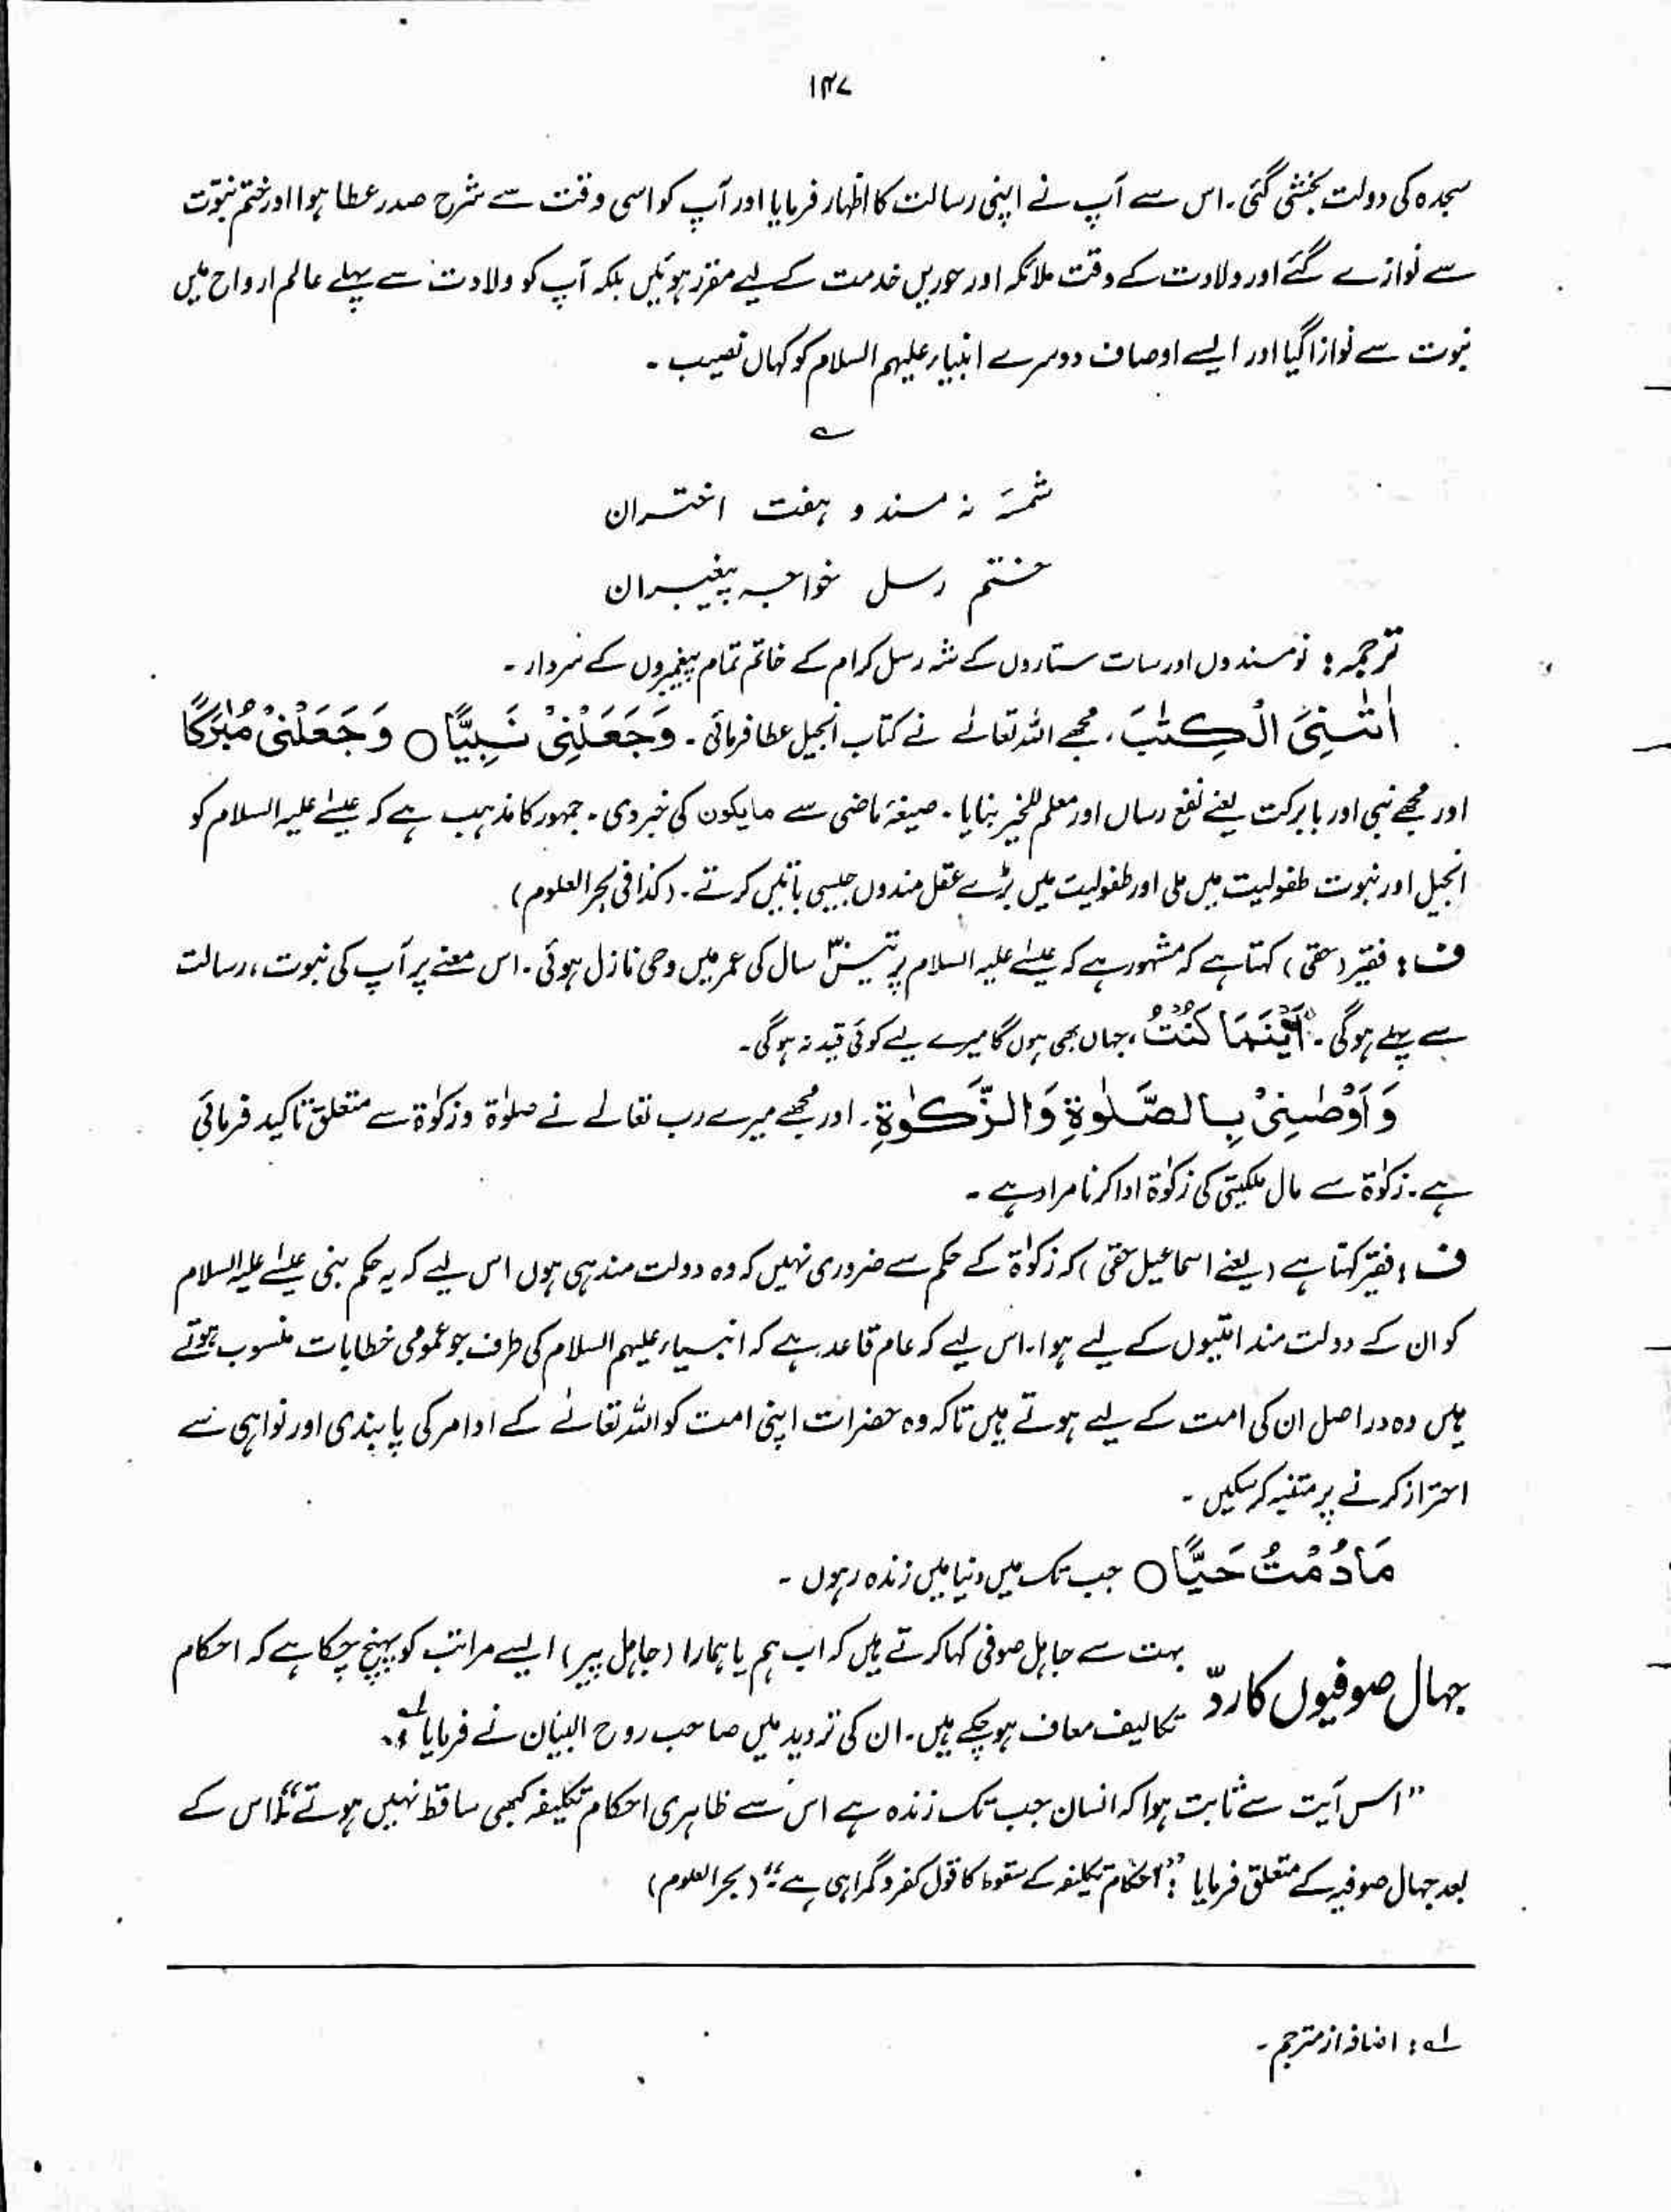 ۱۴۷
سجدہ کی دولت بخشی گئی۔ اس سے آپ نے اپنی رسالت کا اظہار فرمایا اور آپ کو اسی وقت سے شرح صدر عطا ہوا اور ختم نبوّت
سے نوازے گئے اور ولادت کے وقت ملائکہ اور حوریں خدمت کے لیے مقرر ہوئیں بلکہ آپ کو ولادت سے پہلے عالم ارواح میں
نبوت سے نوازا گیا اور ایسے اوصاف دوسرے انبیاء علیہم السلام کو کہاں نصیب ۔
؎
شمسۂ نہ مسند و ہفت اختران
ختم رسل خواجہ پیغیبران
ترجمہ: نو مسندوں اور سات ستاروں کے شہ رسل کرام کے خاتم تمام پیغمبروں کے سردار ۔
اٰتٰىنِیَ الْكِتٰبَ، مجھے اللہ تعالےٰ نے کتاب انجیل عطا فرمائی ۔ وَجَعَلَنِیْ نَبِیًّا ○ وَجَعَلَنِیْ مُبٰرَكًا
اور مجھے نبی اور بابرکت یعنے نفع رساں اور معلم للخیر بنایا ۔ صیغۂ ماضی سے مایکون کی خبر دی ۔ جمہور کا مذہب ہے کہ عیسےٰ علیہ السلام کو
انجیل اور نبوت طفولیت میں ملی اور طفولیت میں بڑے عقل مندوں جیسی باتیں کرتے ۔ (کذا فی بحر العلوم)
ف: فقیر (حقی) کہتا ہے کہ مشہور ہے کہ عیسےٰ علیہ السلام پر تیس۳۰ سال کی عمر میں وحی نازل ہوئی ۔ اس معنے پر آپ کی نبوت، رسالت
سے پہلے ہوگی ۔ اَیْنَمَا كُنْتُ، جہاں بھی ہوں گا میرے لیے کوئی قید نہ ہوگی ۔
وَاَوْصٰنِیْ بِالصَّلٰوةِ وَالزَّكٰوةِ ۔ اور مجھے میرے رب تعالےٰ نے صلوٰۃ و زکوٰۃ سے متعلق تاکید فرمائی
ہے ۔ زکوٰۃ سے مال ملکیتی کی زکوٰۃ ادا کرنا مراد ہے ۔
ف: فقیر کہتا ہے (یعنے اسماعیل حقی) کہ زکوٰۃ کے حکم سے ضروری نہیں کہ وہ دولت مند ہی ہوں اس لیے کہ یہ حکم بنی عیسےٰ علیہ السلام
کو ان کے دولت مند امتیوں کے لیے ہوا، اس لیے کہ عام قاعدہ ہے کہ انبیاء علیہم السلام کی طرف جو عمومی خطابات منسوب ہوتے
ہیں وہ دراصل ان کی امت کے لیے ہوتے ہیں تاکہ وہ حضرات اپنی امت کو اللہ تعالےٰ کے اوامر کی پابندی اور نواہی سے
احتراز کرنے پر متنبہ کر سکیں ۔
مَادُمْتُ حَیًّا ○ جب تک میں دنیا میں زندہ رہوں ۔
جہال صوفیوں کا ردّ
بہت سے جاہل صوفی کہا کرتے ہیں کہ اب ہم یا ہمارا (جاہل پیر) ایسے مراتب کو پہنچ چکا ہے کہ احکام
تکالیف معاف ہو چکے ہیں ۔ ان کی تردید میں صاحب روح البیان نے فرمایا لہ:
”اس آیت سے ثابت ہوا کہ انسان جب تک زندہ ہے اس سے ظاہری احکام تکلیفہ کبھی ساقط نہیں ہوتے“ اس کے
بعد جہال صوفیہ کے متعلق فرمایا : ”احکام تکلیفہ کے سقوط کا قول کفر و گمراہی ہے ۔“ (بحر العلوم)
لہ: اضافہ از مترجم ۔